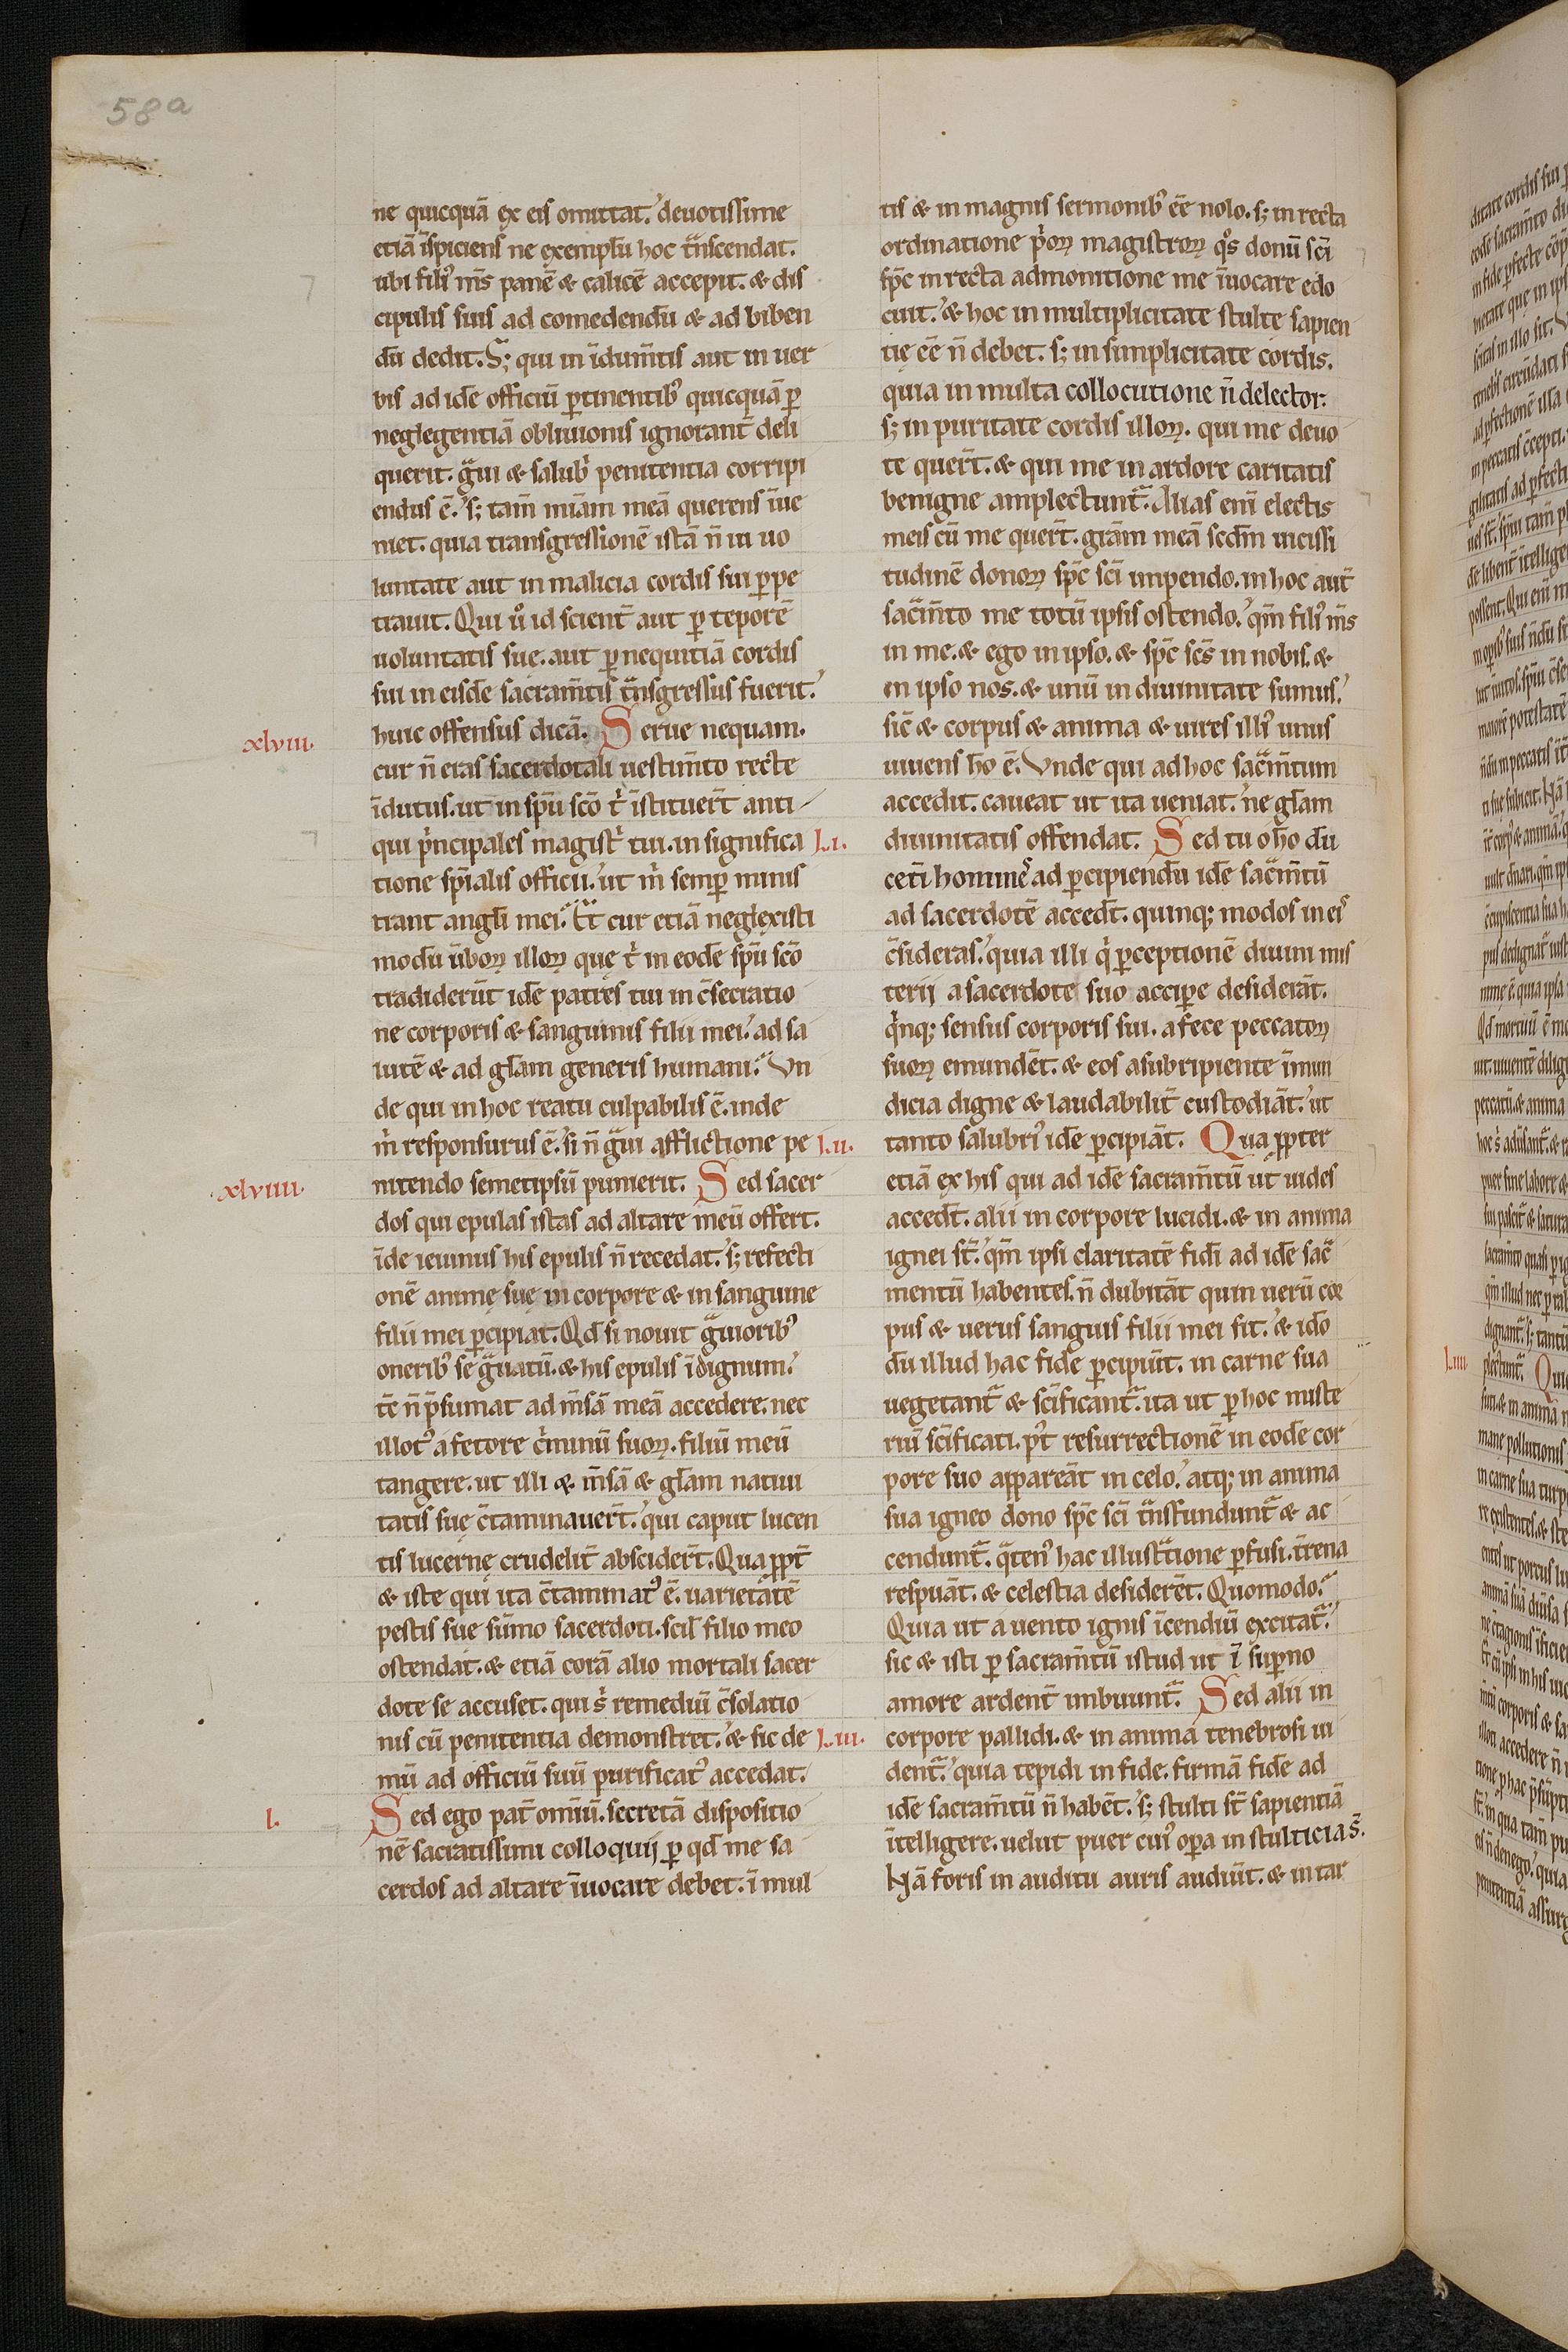 58a
ne quicquā ex eis omittat. deuotissime
etiā īspiciens ne exemplū hoc t̄nscendat.
ubi fili᷒ m̄s panē & calicē accepit. & dis
cipulis suis ad comedendū & ad biben
dū dedit. S; qui in īdum̄tis aut in uer
bis ad idē officiū ꝑtinentib᷒ quicquā ꝑ
neglegentiā obliuionis ignorant̄ deli
querit. gͣui & salubͥ penitentia corripi
endus ē. s; tam̄ miām meā querens īue
niet. quia transgressionē istā n̄ in uo
luntate aut in malicia cordis sui ꝑpe
trauit. Qui uͦ id scient̄ aut ꝑ teporē
uoluntatis sue. aut ꝑ nequitiā cordis
sui in eisdē sacram̄tis tͣnsgressus fuerit.
xlviii. huic offensus dicā. Serue nequam.
cur n̄ eras sacerdotali uestim̄to recte
īdutus. ut in sp̄u sc̄o tͥ īstituer̄t anti
qui pͥncipales magistͥ tui. in significa
tione sp̄ialis officii. ut mͥ semꝑ minis
trant angl̄i mei. Et cur etiā neglexisti
modū ūboꝝ illoꝝ que tͥ in eodē sp̄u sc̄o
tradiderūt idē patres tui in c̄secratio
ne corporis & sanguinis filii mei. ad sa
lutē & ad gl̄am generis humani. Vn
de qui in hoc reatu culpabilis ē. inde
mͥ responsurus ē. si n̄ gͣui afflictione pe
xlviiii. nitendo semetipsū punierit. Sed sacer
dos qui epulas istas ad altare meū offert.
īde ieiunus his epulis n̄ recedat. s; refecti
onē anime sue in corpore & in sanguine
filii mei ꝑcipiat. Qd̄ si nouit gͣuiorib᷒
onerib᷒ se gͣuatū. & his epulis īdignum.
tc̄ n̄ p̄sumat ad m̄sā meā accedere. nec
illot᷒ a fetore cͥminū suoꝝ. filiū meū
tangere. ut illi & m̄sā & gl̄am natiui
tatis sue c̄taminauer̄t. qui caput lucen
tis lucerne crudelit̄ abscider̄t. Qua ꝓpt̄
& iste qui ita c̄taminat᷒ ē. uarietatē
pestis sue sūmo sacerdoti. scil̄ filio meo
ostendat. & etiā corā alio mortali sacer
dote se accuset. qui sͥ remediū c̄solatio
nis cū penitentia demonstret. & sic de
mū ad officiū suū purificat᷒ accedat.
l. Sed ego pat̄ omiū. secretā dispositio
nē sacratissimi colloquij ꝑ qd̄ me sa
cerdos ad altare īuocare debet. ī mul
tis & in magnis sermonib᷒ ēe nolo. s; in recta
ordinatione pͥoꝝ magistroꝝ qͦs donū sc̄i
sp̄c in recta admonitione me īuocare edo
cuit. & hoc in multiplicitate stulte sapien
tie ēe n̄ debet. s; in simplicitate cordis.
quia in multa collocutione n̄ delector.
s; in puritate cordis illoꝝ. qui me deuo
te quer̄t. & qui me in ardore caritatis
benigne amplectuntͣ. Alias eni̅ electis
meis cū me quer̄t. gr̄am meā scd̄m uicissi
tudinē donoꝝ sp̄c sc̄i impendo. in hoc aut̄
sac̄m̄to me totū ipsis ostendo. qm̄ fili᷒ m̄s
in me. & ego in ipso. & sp̄c sc̄s in nobis. &
in ipso nos. & unū in diuinitate sumus.
sic̄ & corpus & anima & uires illi᷒ unus
uiuens h̄o ē. Vnde qui ad hoc sac̄m̄tum
accedit. caueat ut ita ueniat. ne gl̄am
L.i. diuinitatis offendat. Sed tu o ho dū
cet̄i homines ad ꝑcipiendū idē sac̄m̄tū
ad sacerdotē acced̄t. quinq; modos in eis
c̄sideras. quia illi qͥ ꝑceptionē diuini mis
terij a sacerdote suo acciꝑe desiderāt.
qͥnq; sensus corporis sui. a fece peccatoꝝ
suoꝝ emundēt. & eos a subripiente īmun
dicia digne & laudabilit̄ custodiāt. ut
L.ii. tanto salubri᷒ idē ꝑcipiāt. Qua ꝓpter
etiā ex his qui ad idē sacram̄tū ut uides
acced̄t. alii in corpore lucidi. & in anima
ignei st̄. qm̄ ipsi claritatē fidi̅ ad idē sac̄
mentū habentes. n̄ dubitāt quin uerū cor
pus & uerus sanguis filii mei sit. & idō
dū illud hac fide ꝑcipiūt. in carne sua
uegetantͣ & sc̄ificantͣ. ita ut ꝑ hoc miste
riū sc̄ificati. pͭ resurrectionē in eodē cor
pore suo appareāt in celo. atq; in anima
sua igneo dono sp̄c sc̄i tͣnsfunduntͣ & ac
cenduntͣ. qͣten᷒ hac illustͣtione ꝑfusi. t̄rena
respuāt. & celestia desiderēt. Quomodo.
Quia ut a uento ignis īcendiū excitatͣ.
sic & isti ꝑ sacram̄tū istud ut ī suꝑno
amore ardent̄ imbuuntͣ. Sed alii in
L.iii. corpore pallidi. & in anima tenebrosi ui
dentͣ. quia tepidi in fide. firmā fidē ad
idē sacram̄tū n̄ habēt. s; stulti st̄ sapientiā
ītelligere. uelut puer cui᷒ oꝑa in stulticia s̄.
Nā foris in auditu auris audiūt. & in tar
L.iiii.